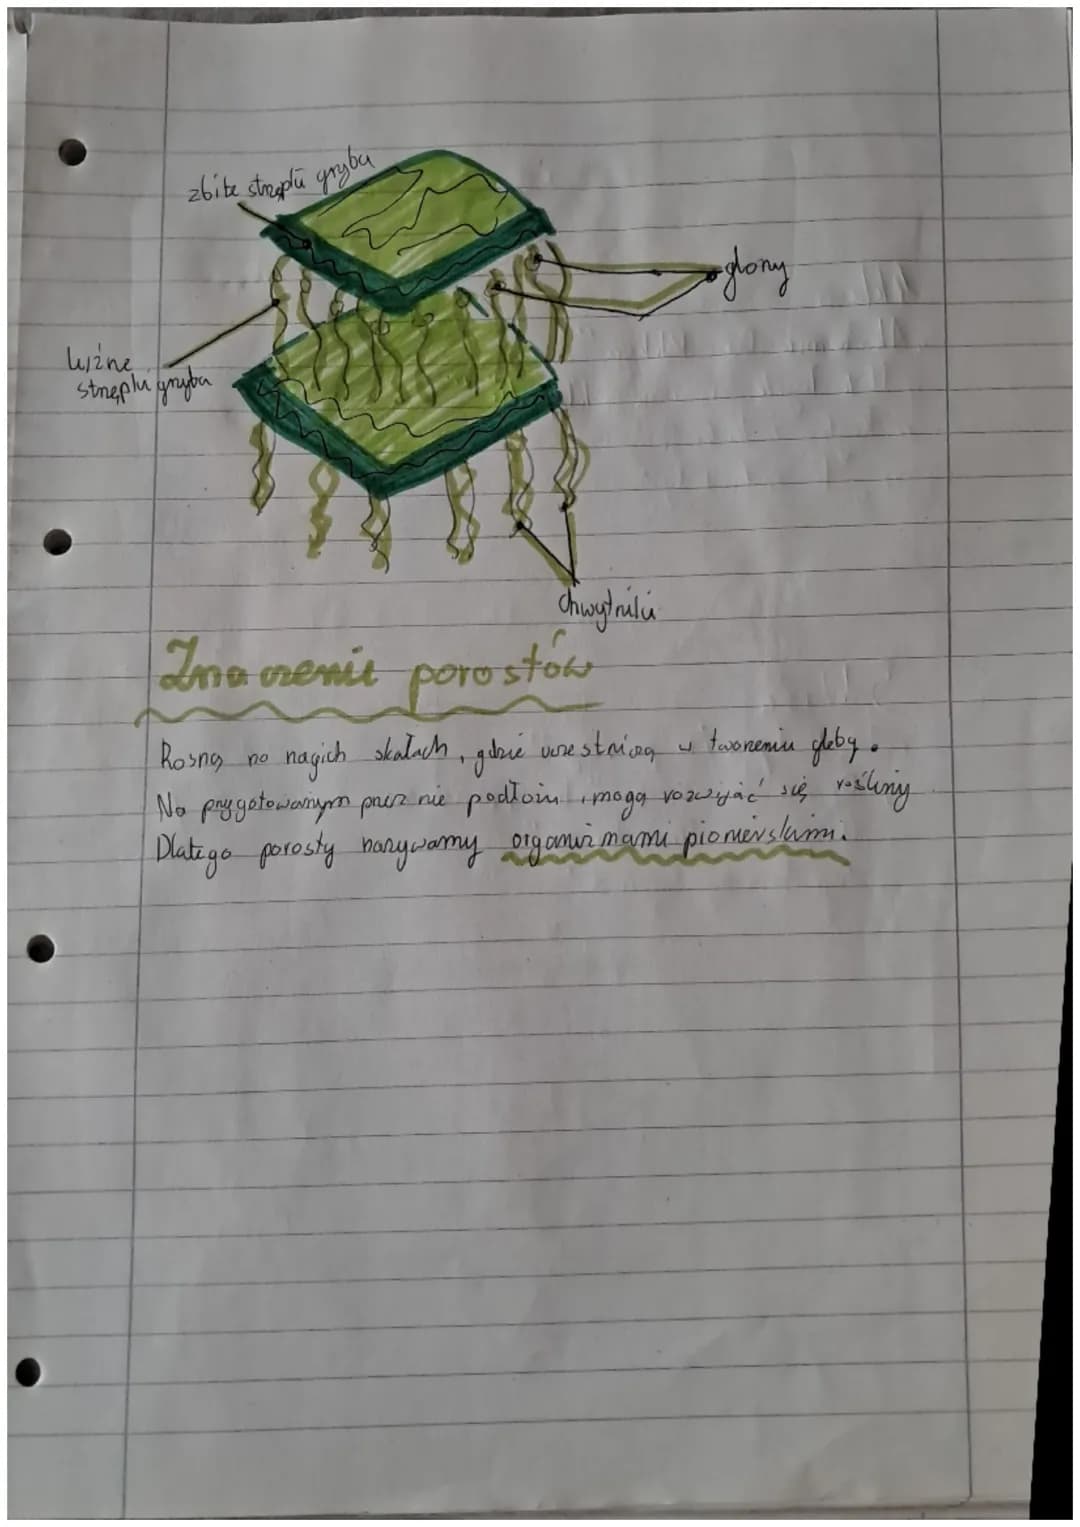 zbite strzępki grzyba
glony
luźne
strzępki grzyba
chwytniki
Znaczenie porostów
Rosną na nagich skałach, gdzie uczestniczą w tworzeniu gleby.
Na przygotowanym przez nie podłożu, mogą rozwijać się rośliny
Dlatego porosty nazywamy organizmami pionierskimi.